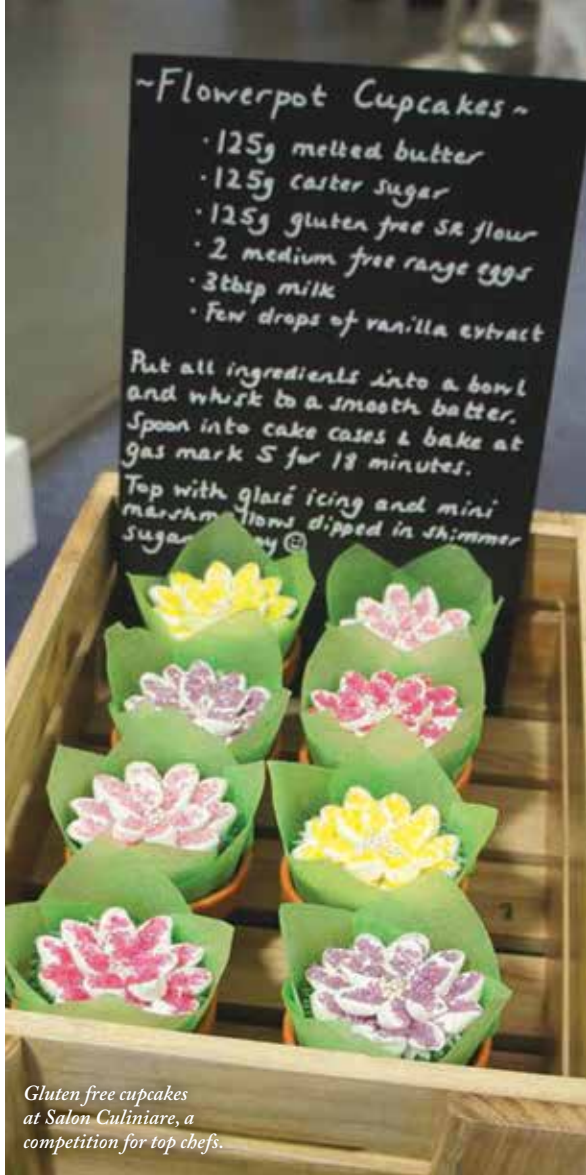 ~Flowerpot Cupcakes~
· 125g melted butter
· 125g caster sugar
· 125g gluten free SR flour
· 2 medium free range eggs
· 3tbsp milk
· Few drops of vanilla extract
Put all ingredients into a bowl
and whisk to a smooth batter.
Spoon into cake cases & bake at
gas mark 5 for 18 minutes.
Top with glasé icing and mini
marshmallows dipped in shimmer
sugar
Gluten free cupcakes
at Salon Culiniare, a
competition for top chefs.